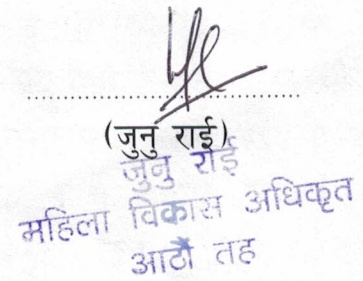 (जुनु राई)
जुनु राई
महिला विकास अधिकृत
आठौं तह